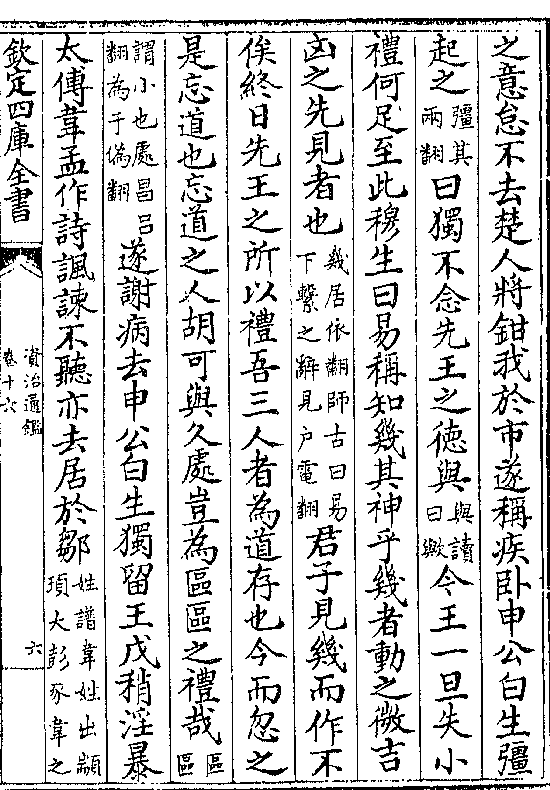 之意怠不去楚人將鉗我於市遂稱疾臥申公白生彊
起之彊其兩翻曰獨不念先王之德與與讀曰歟今王一旦失小
禮何足至此穆生曰易稱知幾其神乎幾者動之微吉
凶之先見者也幾居依翻師古曰易下繫之辭見戸電翻君子見幾而作不
俟終日先王之所以禮吾三人者為道存也今而忽之
是忘道也忘道之人胡可與久處豈為區區之禮哉區區
謂小也處昌呂翻為于偽翻遂謝病去申公白生獨留王戊稍淫暴
太傅韋孟作詩諷諫不聽亦去居於鄒姓譜韋姓出顓頊大彭豕韋之
欽定四庫全書
資治通鑑
卷十六
六